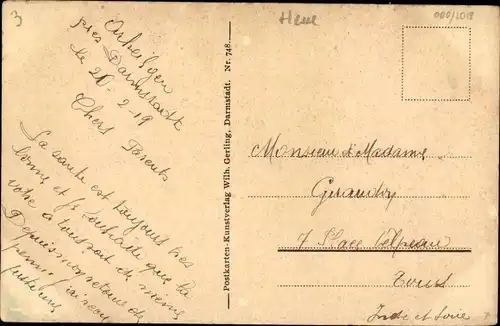 3
Hene
000/1018
Arheilgen
près Darmstadt
le 20-2-19
Chers Parents
La santé est toujours très
bonne et je souhaite que la
votre à tous soit de même
Depuis mon retour de
perm. j'ai reçu
Postkarten-Kunstverlag Wilh. Gerling, Darmstadt. Nr. 748.
Monsieur et Madame
7 Place Velpeau
Tours
Indre et Loire